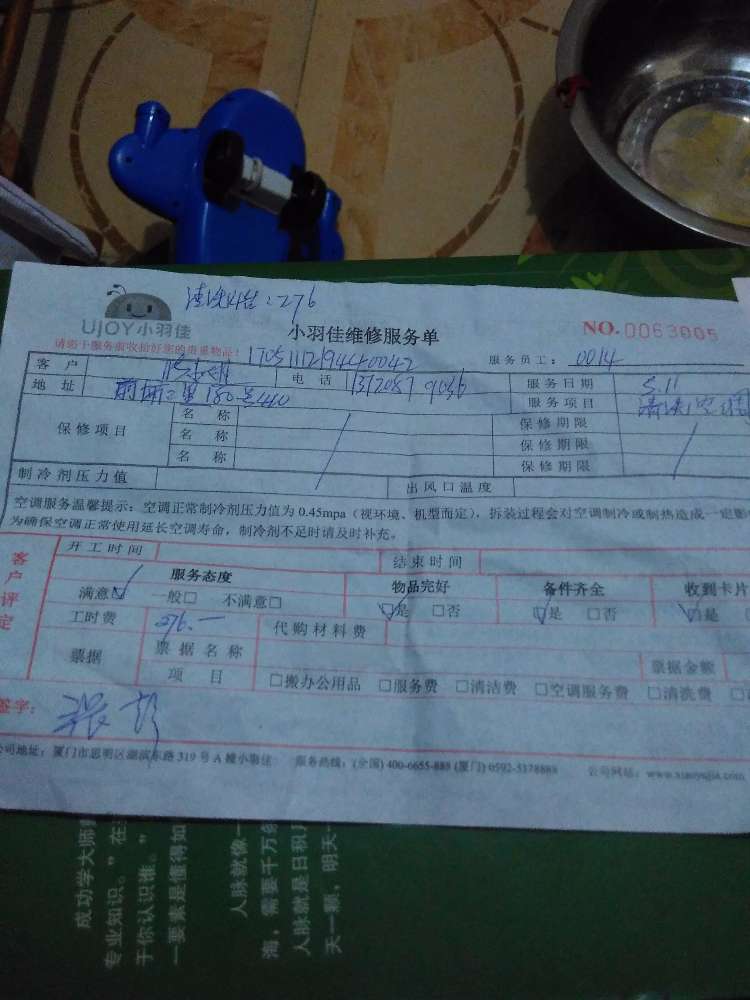 清洗外台:276
UJOY小羽佳 小羽佳维修服务单 NO.0063005
请您于服务前收拾好您的贵重物品! 服务员工: 0014
客户 电话 服务日期 5.11
地址 服务项目 清洗空调
保修项目 名称 保修期限
名称 保修期限
名称 保修期限
制冷剂压力值 出风口温度
空调服务温馨提示:空调正常制冷剂压力值为 0.45mpa(视环境、机型而定),拆装过程会对空调制冷或制热造成一定
为确保空调正常使用延长空调寿命,制冷剂不足时请及时补充。
客户评定 开工时间 结束时间
服务态度 物品完好 备件齐全 收到卡片
满意☑ 一般□ 不满意□ ☑是 □否 ☑是 □否 ☑是
工时费 276.— 代购材料费
票据 票据名称 票据金额
项目 □搬办公用品 □服务费 □清洁费 □空调服务费 □清洗费
签字:
公司地址:厦门市思明区湖滨东路 319 号 A 幢小羽佳 服务热线:(全国) 400-6655-888 (厦门) 0592-5178888 公司网站:www.xiaoyujia.com
成功学大师
专业知识。”在
于你认识谁。”
一要素是懂得如
人脉就像一
海,需要千万条
人脉就是日积月
天一颗,明天一